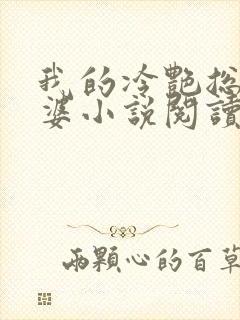 我的冷艷总
婆小説閱讀
兩顆心的百草